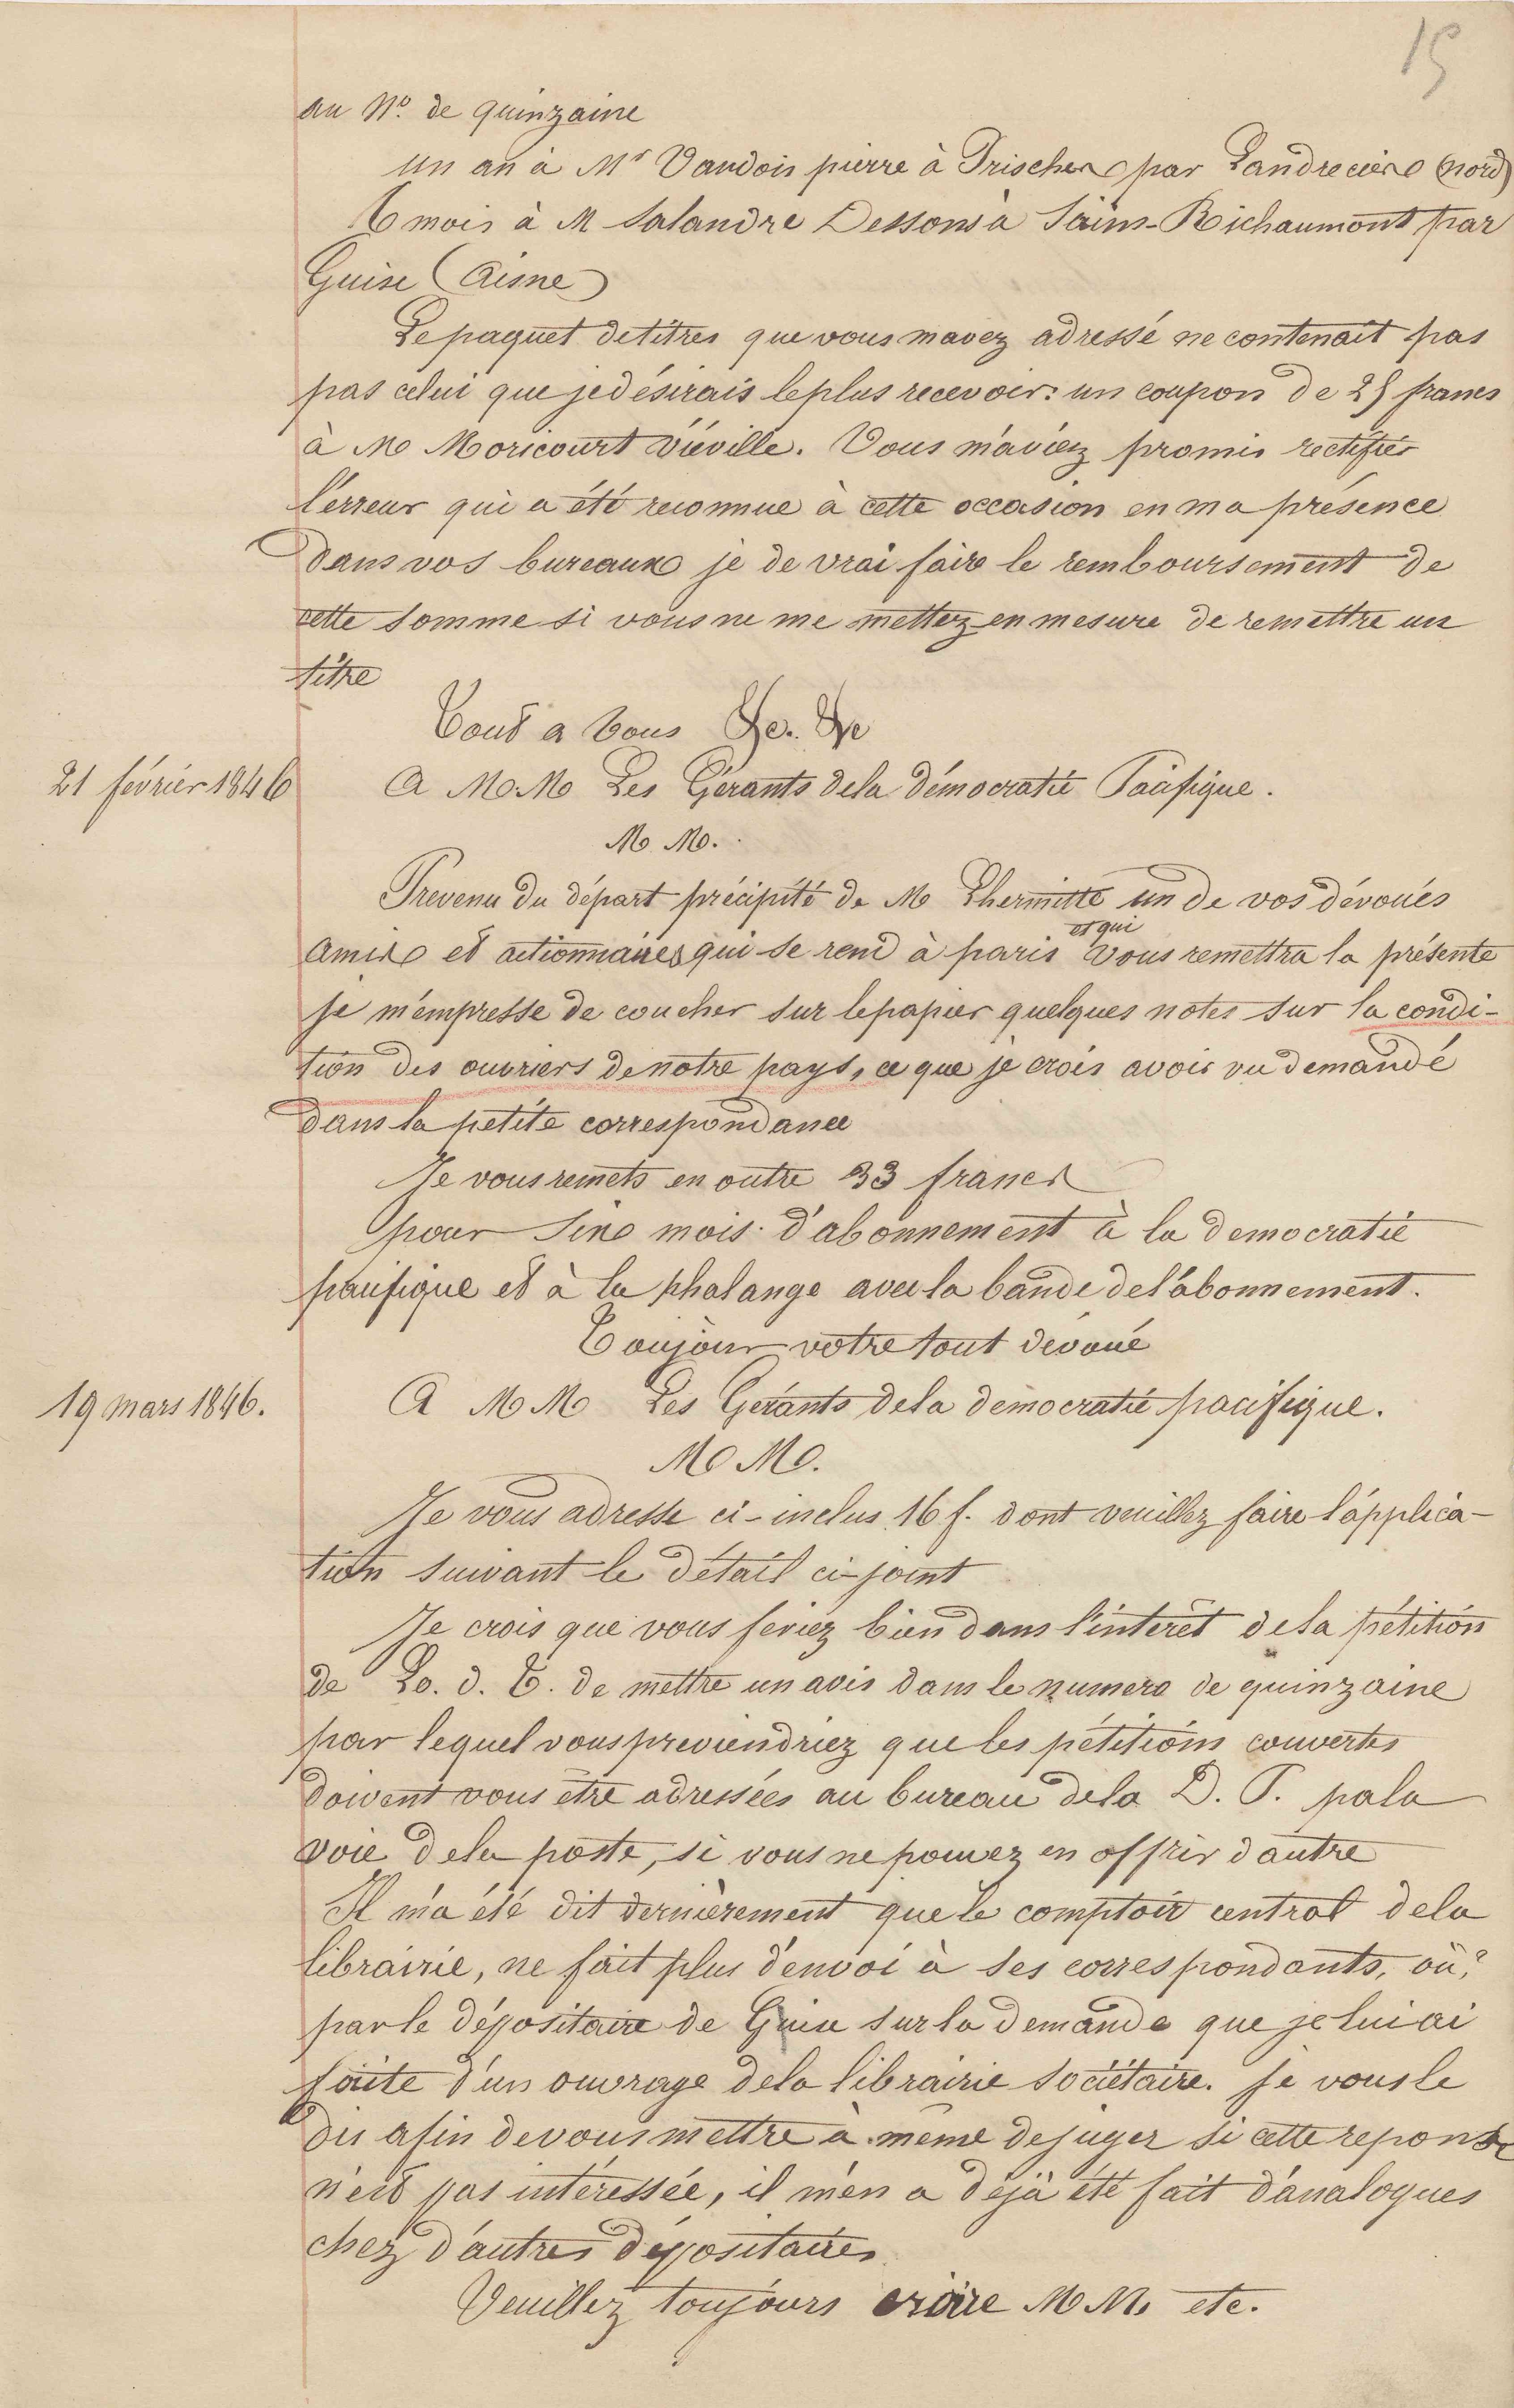 15
au N° de quinzaine
un an à Mr Vandois pierre à Prisches par Landrecies (nord)
6 mois à M Salandre Dessons à Sains-Richaumont par
Guise (Aisne)
Le paquet de titres que vous mavez adressé ne contenait pas
pas celui que je désirais le plus recevoir: un coupon de 25 francs
à M Moricourt Viéville. Vous m'aviez promis rectifier
l'erreur qui a été reconnue à cette occasion en ma présence
dans vos bureaux je de vrai faire le remboursement de
cette somme si vous ne me mettez en mesure de remettre un
titre
Tout a vous &c. &c
21 février 1846
A M.M Les Gérants de la démocratie Pacifique.
M M.
Prevenu du départ précipité de M Lhermitte un de vos dévoués
amis et actionnaires qui se rend à paris et qui vous remettra la présente
je m'empresse de coucher sur le papier quelques notes sur la condi-
tion des ouvriers de notre pays, ce que je crois avoir vu demandé
dans la petite correspondance
Je vous remets en outre 33 francs
pour six mois d'abonnement à la democratie
pacifique et à la phalange avec la bande de l'abonnement.
Toujour votre tout dévoué
19 mars 1846.
A M M Les Gérants de la démocratie pacifique.
M M.
Je vous adresse ci-inclus 16 f. dont veuillez faire l'applica-
tion suivant le détail ci-joint
Je crois que vous feriez bien dans l'intérêt de la pétition
de Lo. d. T. de mettre un avis dans le numero de quinzaine
par lequel vous previendriez que les pétitions couvertes
doivent vous être adressées au bureau de la D. P. pala
voie de la poste, si vous ne pouvez en offrir d'autre
Il m'a été dit dernièrement que le comptoir central de la
librairie, ne fait plus d'envoi à ses correspondants, où?
par le dépositaire de Guise sur la demande que je lui ai
faite d'un ouvrage de la librairie sociétaire. je vous le
dis afin de vous mettre à même de juger si cette reponse
n'est pas intéressée, il m'en a déjà été fait d'analogues
chez d'autres dépositaires.
Veuillez toujours croire M M. etc.